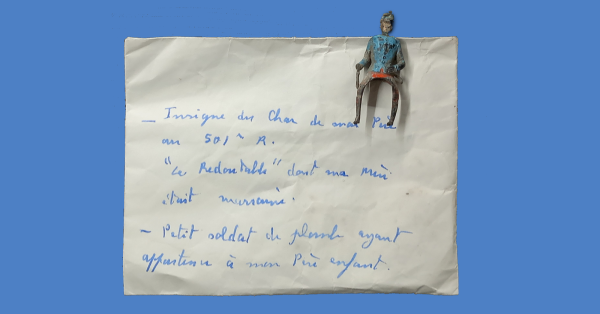 — Insigne du Char de mon Père
au 501e R.
"Le Redoutable" dont ma Mère
était marraine.
- Petit soldat de plomb ayant
appartenu à mon Père enfant.